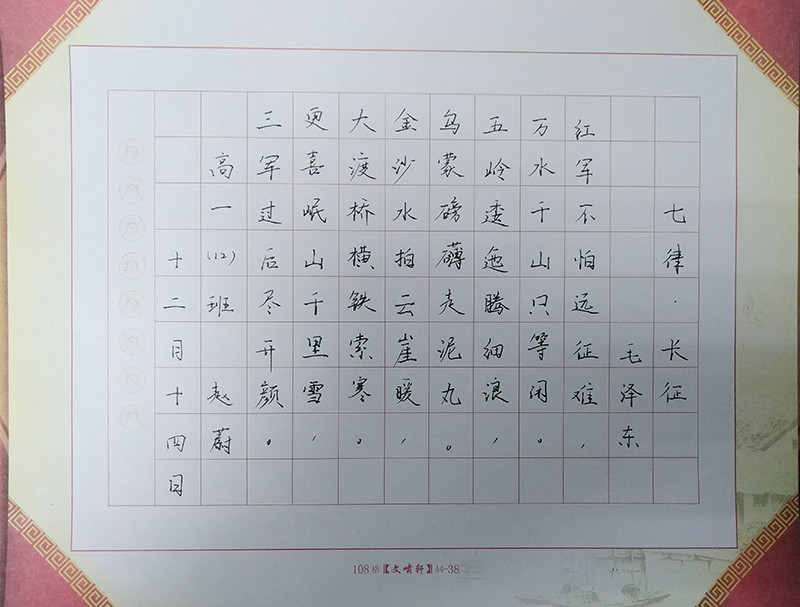 七律·长征
毛泽东
红军不怕远征难，
万水千山只等闲。
五岭逶迤腾细浪，
乌蒙磅礴走泥丸。
金沙水拍云崖暖，
大渡桥横铁索寒。
更喜岷山千里雪，
三军过后尽开颜。
高一(12)班 赵蔚
十二月十四日
108格【文啸轩】A4-38